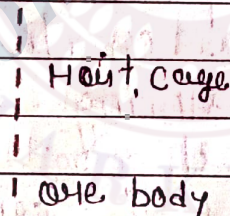 Hoist, cage
ore body